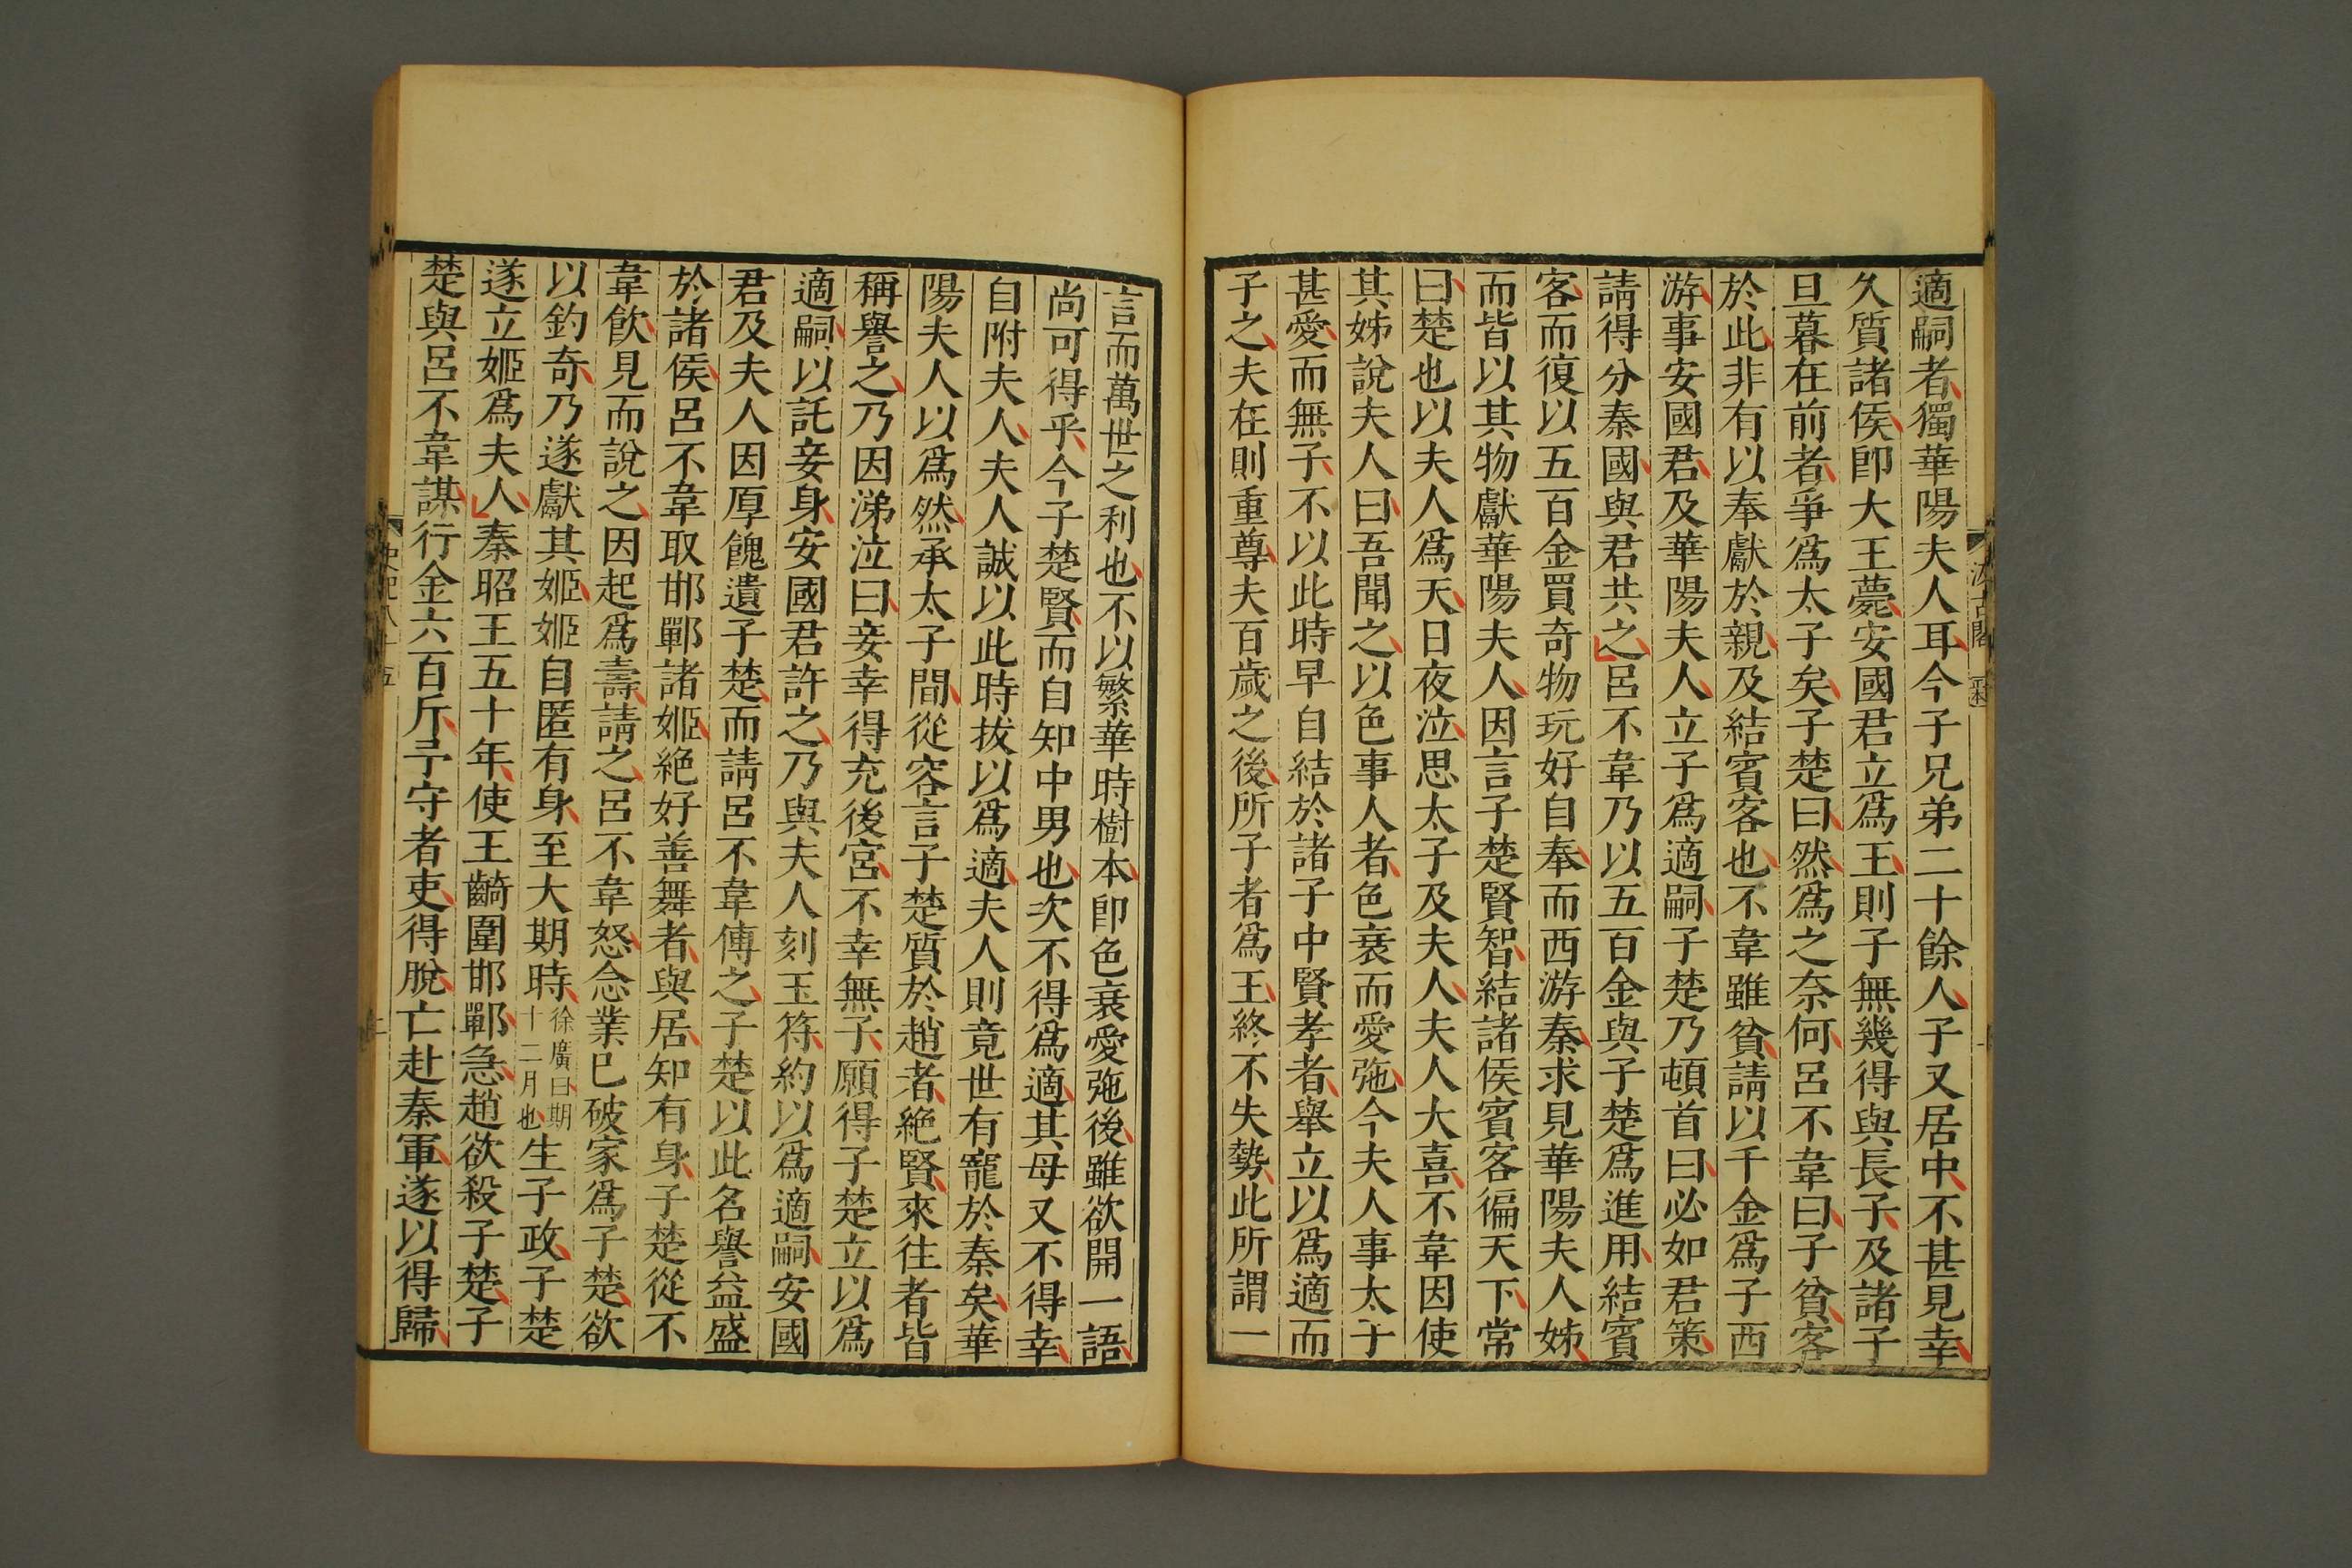 適嗣者獨華陽夫人耳今子兄弟二十餘人子又居中不甚見幸
久質諸侯卽大王薨安國君立爲王則子無幾得與長子及諸子
旦暮在前者爭爲太子矣子楚曰然爲之奈何呂不韋曰子貧客
於此非有以奉獻於親及結賓客也不韋雖貧請以千金爲子西
游事安國君及華陽夫人立子爲適嗣子楚乃頓首曰必如君策
請得分秦國與君共之呂不韋乃以五百金與子楚爲進用結賓
客而復以五百金買奇物玩好自奉而西游秦求見華陽夫人姊
而皆以其物獻華陽夫人因言子楚賢智結諸侯賓客徧天下常
曰楚也以夫人爲天日夜泣思太子及夫人夫人大喜不韋因使
其姊說夫人曰吾聞之以色事人者色衰而愛弛今夫人事太子
甚愛而無子不以此時早自結於諸子中賢孝者舉立以爲適而
子之夫在則重尊夫百歲之後所子者爲王終不失勢此所謂一
言而萬世之利也不以繁華時樹本卽色衰愛弛後雖欲開一語
尚可得乎今子楚賢而自知中男也次不得爲適其母又不得幸
自附夫人夫人誠以此時拔以爲適夫人則竟世有寵於秦矣華
陽夫人以爲然承太子間從容言子楚質於趙者絕賢來往者皆
稱譽之乃因涕泣曰妾幸得充後宮不幸無子願得子楚立以爲
適嗣以託妾身安國君許之乃與夫人刻玉符約以爲適嗣安國
君及夫人因厚餽遺子楚而請呂不韋傅之子楚以此名譽益盛
於諸侯呂不韋取邯鄲諸姬絕好善舞者與居知有身子楚從不
韋飲見而說之因起爲壽請之呂不韋怒念業已破家爲子楚欲
以釣奇乃遂獻其姬姬自匿有身至大期時徐廣曰期十二月也生子政子楚
遂立姬爲夫人秦昭王五十年使王齮圍邯鄲急趙欲殺子楚子
楚與呂不韋謀行金六百斤予守者吏得脫亡赴秦軍遂以得歸
史記八十五